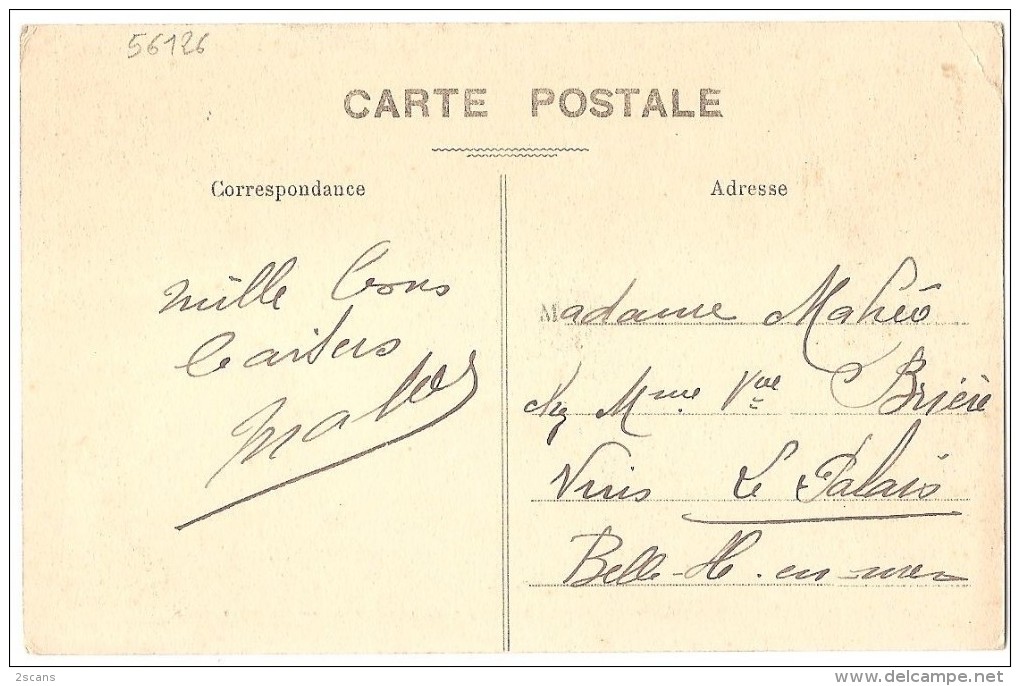 56126
CARTE POSTALE
Correspondance
Adresse
Mille bons
baisers
Mahéo
Madame Mahéo
chez Mme Vve Brière
Vins Le Palais
Belle-Ile-en-mer
2scans
www.delcampe.net